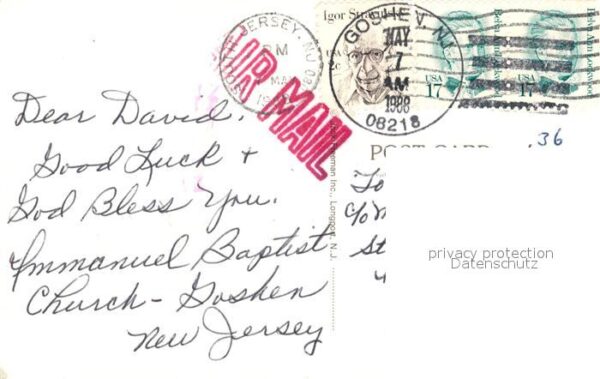 Dear David,
Good Luck +
God Bless You.
Immanuel Baptist
Church - Goshen
New Jersey
AIR MAIL
SOUTH JERSEY, NJ 08
PM
MAY
Igor Stravinsky
USA
2c
GOSHEN, NJ
MAY
7
AM
1988
08218
USA
17
USA
17
POST CARD
36
To
c/o
St
privacy protection
Datenschutz
Inc., Longport, N.J.